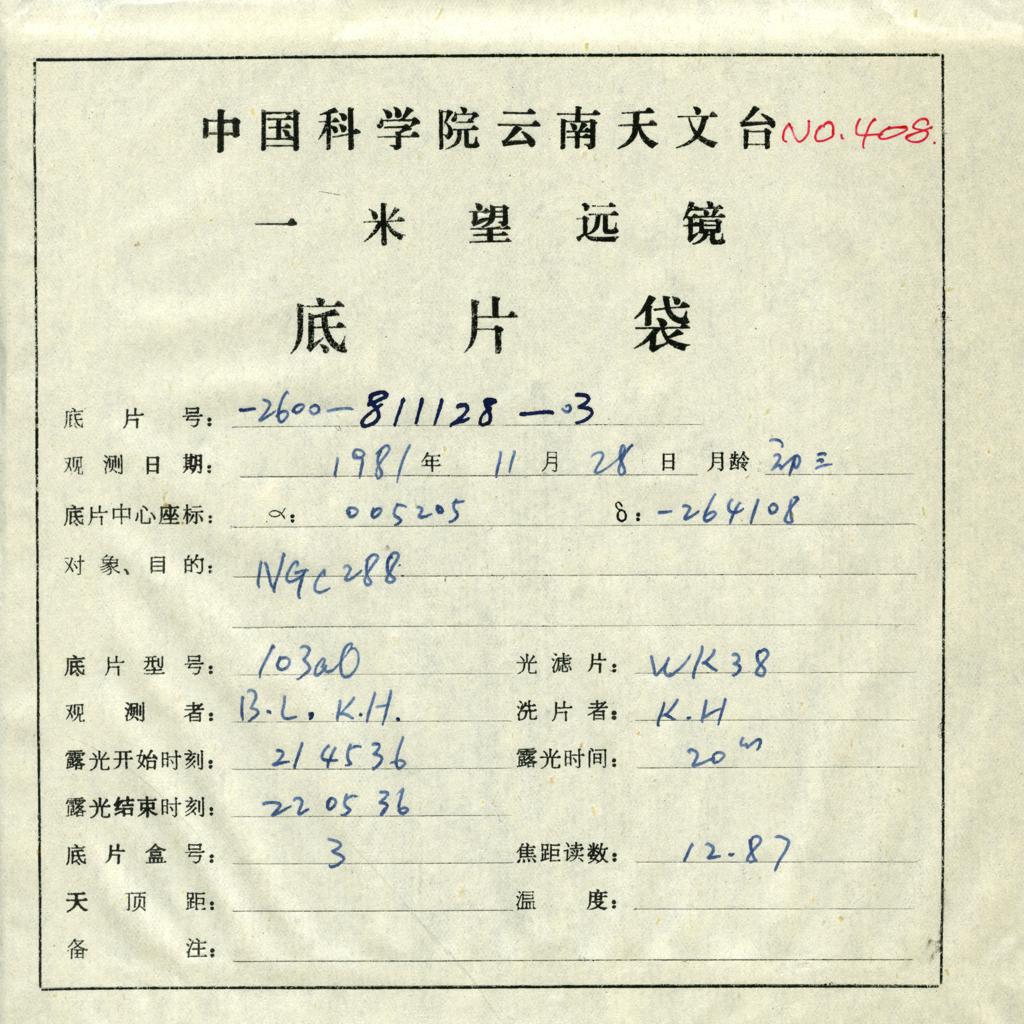 中国科学院云南天文台 NO.408.
一米望远镜
底片袋
底片号: -2600-811128-03
观测日期: 1981年 11月 28日 月龄 初三
底片中心座标: α: 005205 δ: -264108
对象、目的: NGC 288
底片型号: 103aO 光滤片: WK38
观测者: B.L. K.H. 洗片者: K.H
露光开始时刻: 214536 露光时间: 20m
露光结束时刻: 220536
底片盒号: 3 焦距读数: 12.87
天顶距: 温度:
备注: